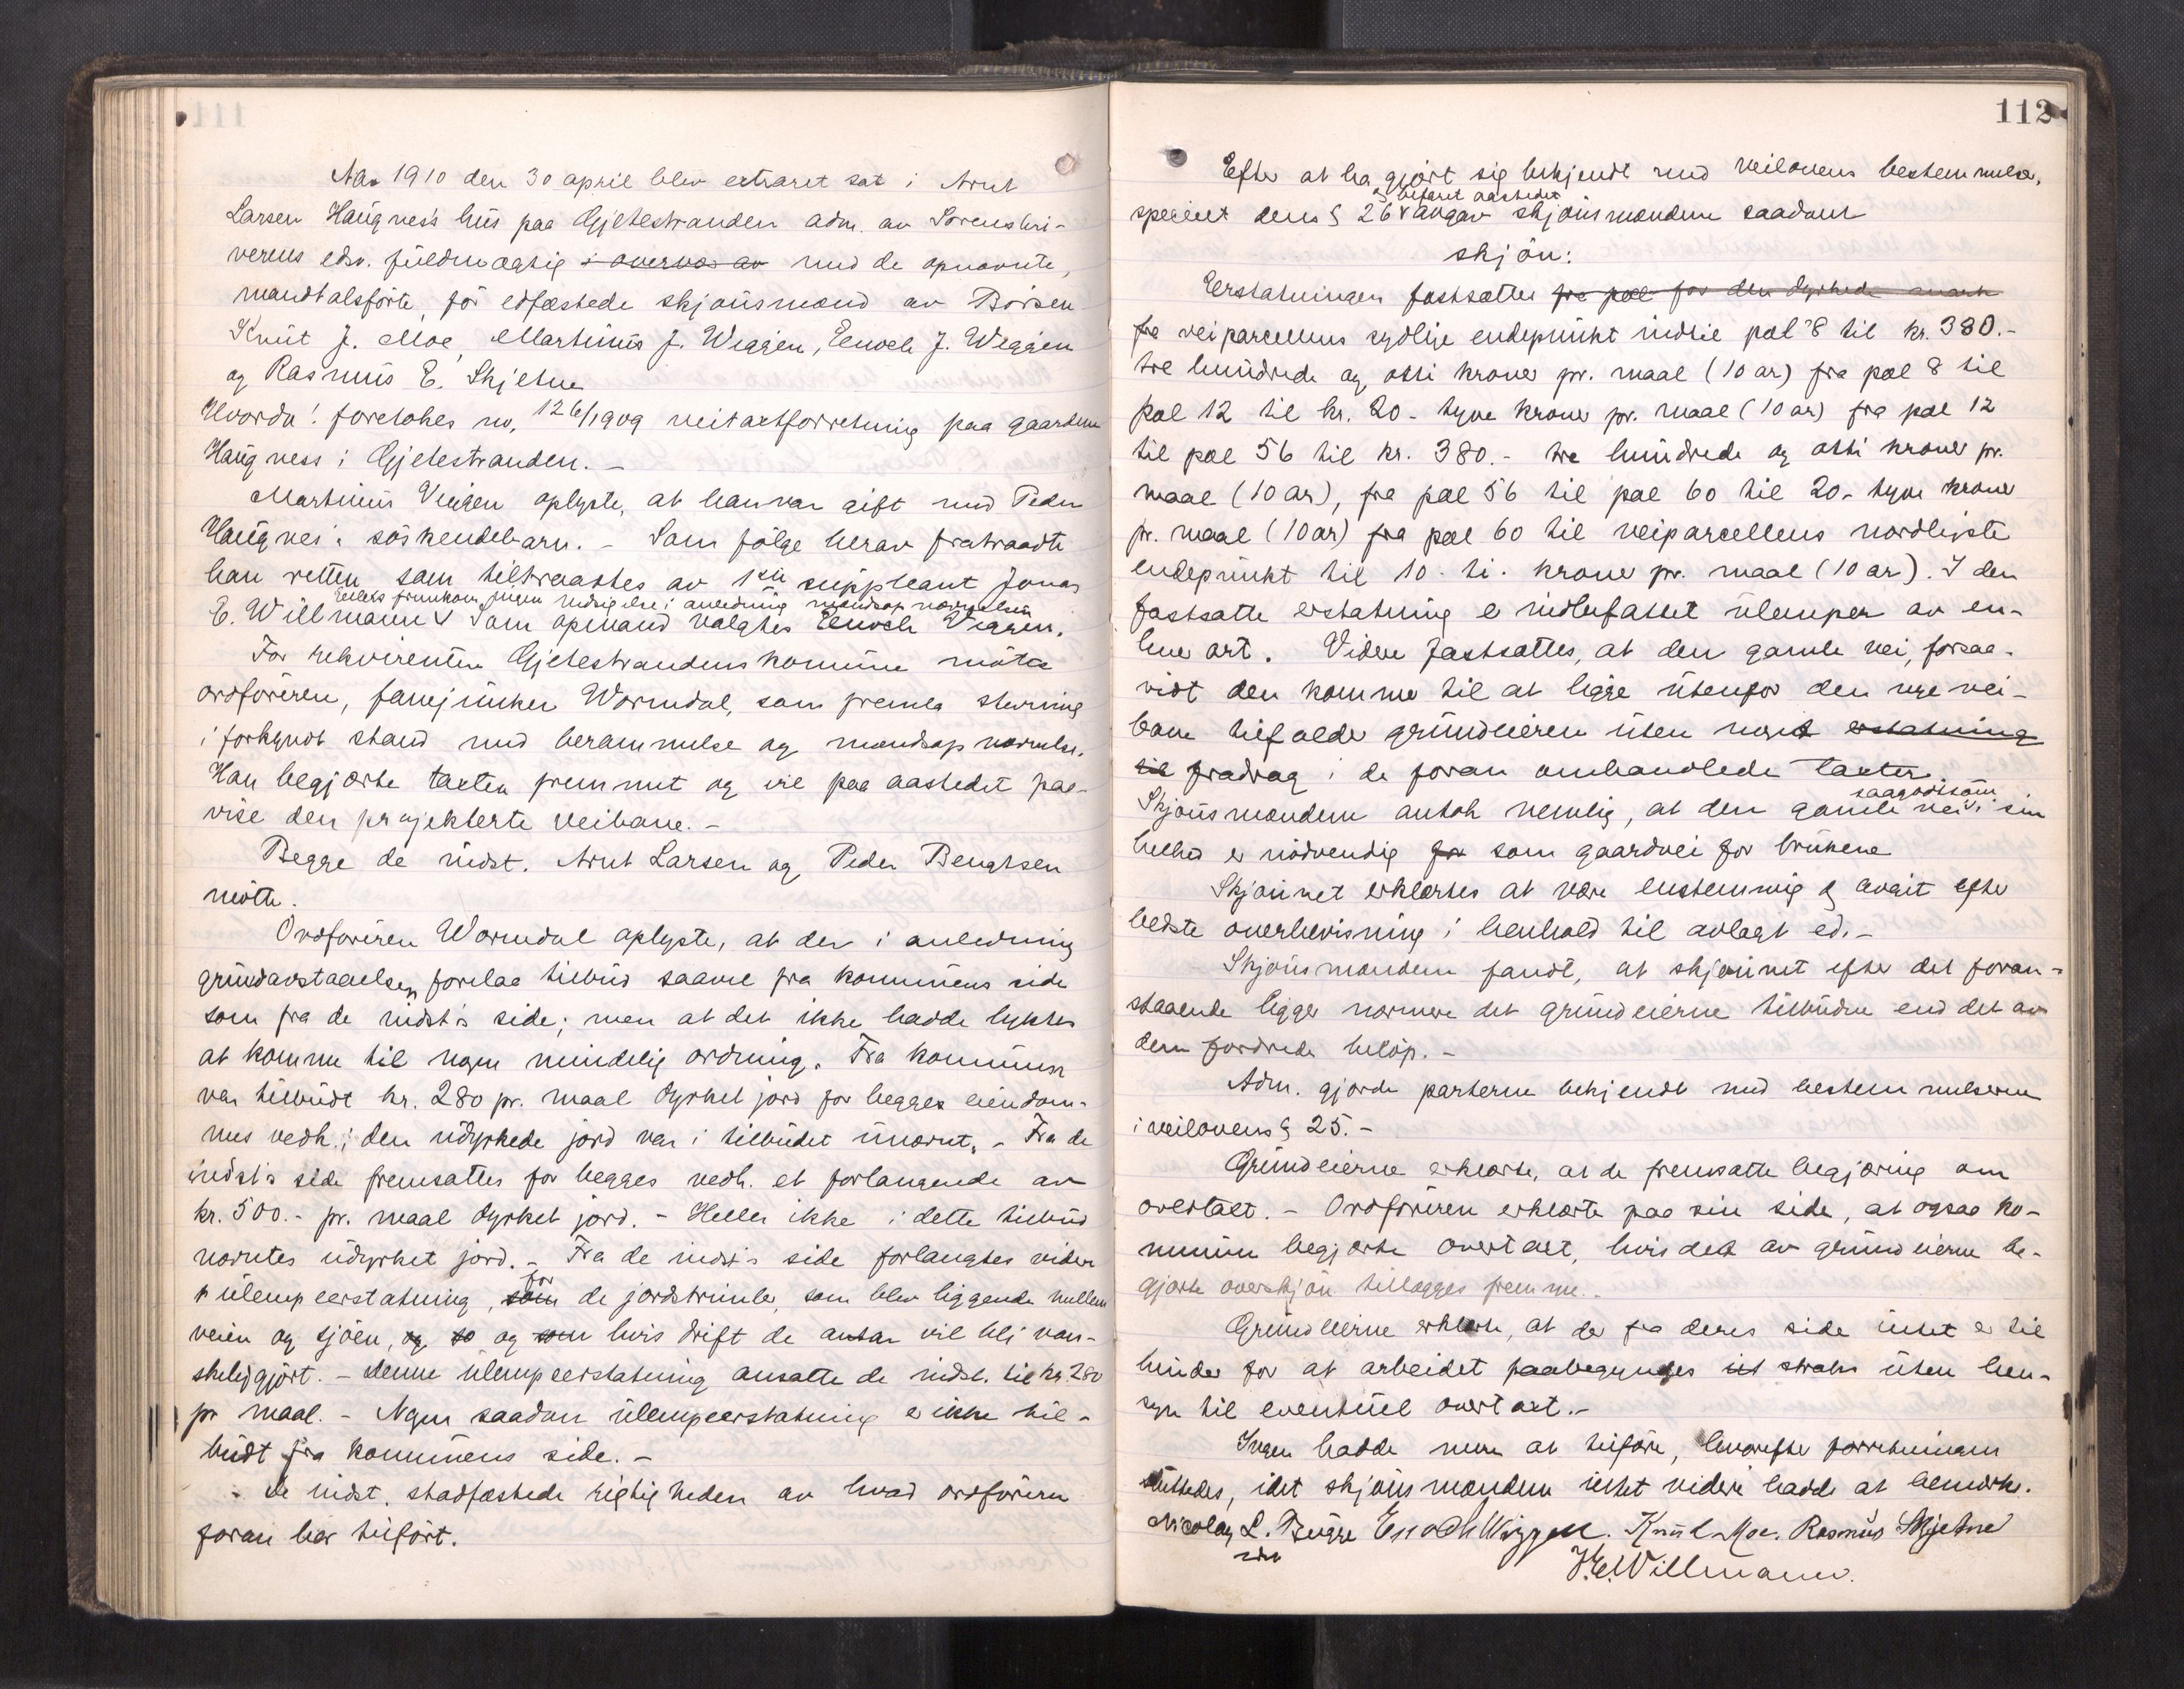 Aar 1910 den 30 april blev extraret sat i Arnt
Larsen Haugness hus paa Gjeltestranden adm. av Sorenskri-
verens edsv. fuldmægtig i overvær av med de opnævnte,
mandtalsførte, før edfæstede skjønsmænd av Børsen
Knut J. Moe, Martinus J. Wiggen, Enoch J. Wiggen
og Rasmus E. Skjetne
Hvorda! foretokes no. 126/1909 veitaxtforretning paa gaarden
Haugness i Gjeltestranden. -
Martinus Viggen oplyste, at han var gift med Peder
Haugnes's søskendebarn. - Som følge herav fratraadte
han retten, som tiltraadtes av 1ste suppleant Jonas
Ellers fremkom ingen indsigelse i anledning mændsopnævnelsen
E. Willmann v Som opmand valgtes Enoch Wiggen.
For rekvirenten Gjetestrandens komune møtte
ordføreren, fanejunker Wormdal, som fremla stevning
i forkyndt stand med berammelse og mændsopnævnelse.
Han begjærte taxten fremmet og vil paa aastedet paa-
vise den projekterte veibane. -
Begge de indst. Arnt Larsen og Peder Bengtsen
møtte.
Ordføreren Wormdal oplyste, at der i anledning
grundavstaaelsen forelaa tilbud saavel fra kommunens side
som fra de indst's side; men at det ikke hadde lykkes
at komme til nogen mindelig ordning. Fra kommunen
var tilbudt kr. 280 pr. maal dyrket jord for begges eiendom-
mes vedk.; den udyrkede jord var i tilbudet unævnt. - Fra de
indst's side fremsattes for begges vedk. et forlangende av
kr. 500.- pr. maal dyrket jord. - Heller ikke i dette tilbud
nævntes udyrket jord. - Fra de indst's side forlangtes videre
ulempeerstatning, som for de jordstrimler, som blev liggende mellem
veien og sjøen, og so og som hvis drift de antar vil bli van-
skeligjort. - Denne ulempeerstatning ansatte de indst. til kr. 280
pr maal. - Nogen saadan ulempeerstatning er ikke til-
budt fra kommunens side. -
De indst. stadfæstede rigtigheden av hvad ordføreren
foran har tilført.
112
Efter at ha gjort sig bekjendt med veilovens bestemmelse,
og befaret aastedet
specielt dens § 26 v avgav skjønsmændene saadant
skjøn:
Erstatningen fastsættes fra pæl for den dyrkede mark
fra veiparcellens sydlige endepunkt indtil pæl 8 til kr. 380.-
tre hundrede og otti kroner pr. maal (10 ar) fra pæl 8 til
pæl 12 til kr. 20 - tyve kroner pr. maal (10 ar) fra pæl 12
til pæl 56 til kr. 380.- tre hundrede og otti kroner pr.
maal (10 ar), fra pæl 56 til pæl 60 til 20 - tyve kroner
pr. maal (10 ar) fra pæl 60 til veiparcellens nordligste
endepunkt til 10 - ti - kroner pr. maal (10 ar). I den
fastsatte erstatning er indbefattet ulemper av en-
hver art. Videre fastsættes, at den gamle vei, forsaa-
vidt den kommer til at ligge utenfor den nye vei-
bane tilfalder grundeieren uten noget erstatning
til fradrag i de foran omhandlede taxter.
saagodtsom
Skjønsmændene antok nemlig, at den gamle vei v i sin
helhed er nødvendig for som gaardvei for brukene
Skjønnet erklærtes at være enstemmig & avgit efter
bedste overbevisning i henhold til avlagt ed. -
Skjønsmændene fandt, at skjønnet efter det foran-
staaende ligger nærmere det grundeierne tilbudne end det av
dem fordrede beløp. -
Adm. gjorde parterne bekjendt med bestemmelserne
i veilovens § 25. -
Grundeierne erklærte, at de fremsatte begjæring om
overtaxt. - Ordføreren erklærte paa sin side, at ogsaa ko-
mmunen begjærte overtaxt, hvis det av grundeierne be-
gjærte overskjøn tillægges fremme. -
Grundeierne erklærte, at der fra deres side intet er til
hinder for at arbeidet paabegyndes ut straks uten hen-
syn til eventuel overtaxt. -
Ingen hadde mere at tilføre, hvorefter forretningen
sluttedes, idet skjønsmændene intet videre hadde at bemerke.
Nicolay L. Bugge Enoch Wiggen. Knut Moe. Rasmus Skjetne
J. E. Willmann.